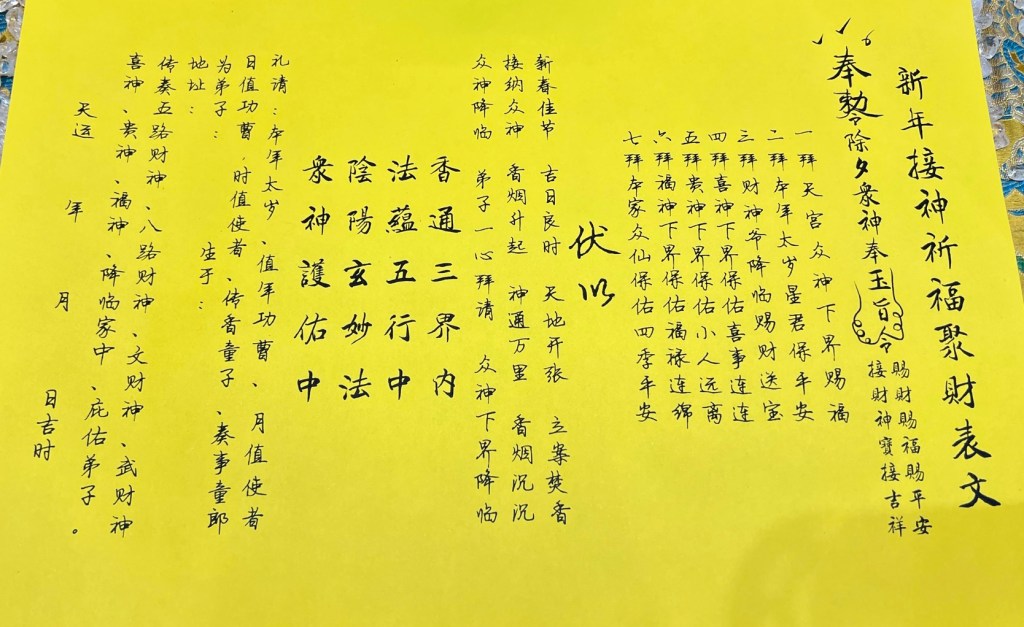 新年接神祈福聚財表文
奉勅令除夕衆神奉玉旨令
賜財賜福賜平安
接財神寶接吉祥
一拜天宫众神下界赐福
二拜本年太岁星君保平安
三拜财神爷降临赐财送宝
四拜喜神下界保佑喜事连连
五拜贵神下界保佑小人远离
六拜福神下界保佑福禄连绵
七拜本家众仙保佑四季平安
伏以
新春佳节 吉日良时 天地开张 立案焚香
接纳众神 香烟升起 神通万里 香烟沉沉
众神降临 弟子一心拜请 众神下界降临
香通三界内
法蘊五行中
陰陽玄妙法
衆神護佑中
礼请：本年太岁、值年功曹、月值使者
日值功曹、时值使者、传香童子、奏事童郎
为弟子： 生于：
地址：
传奏五路财神、八路财神、文财神、武财神
喜神、贵神、福神、降临家中、庇佑弟子。
天运 年 月 日吉时